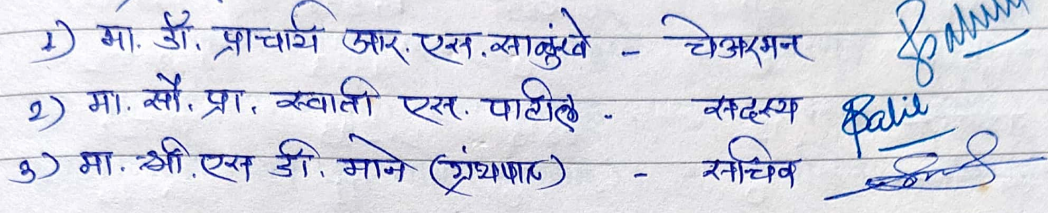 १) मा. डॉ. प्राचार्य आर. एस. साळुंखे - चेअरमन
२) मा. सौ. प्रा. स्वाती एस. पाटील - सदस्य Patil
३) मा. श्री. एस डी. माने (ग्रंथपाल) - सचिव